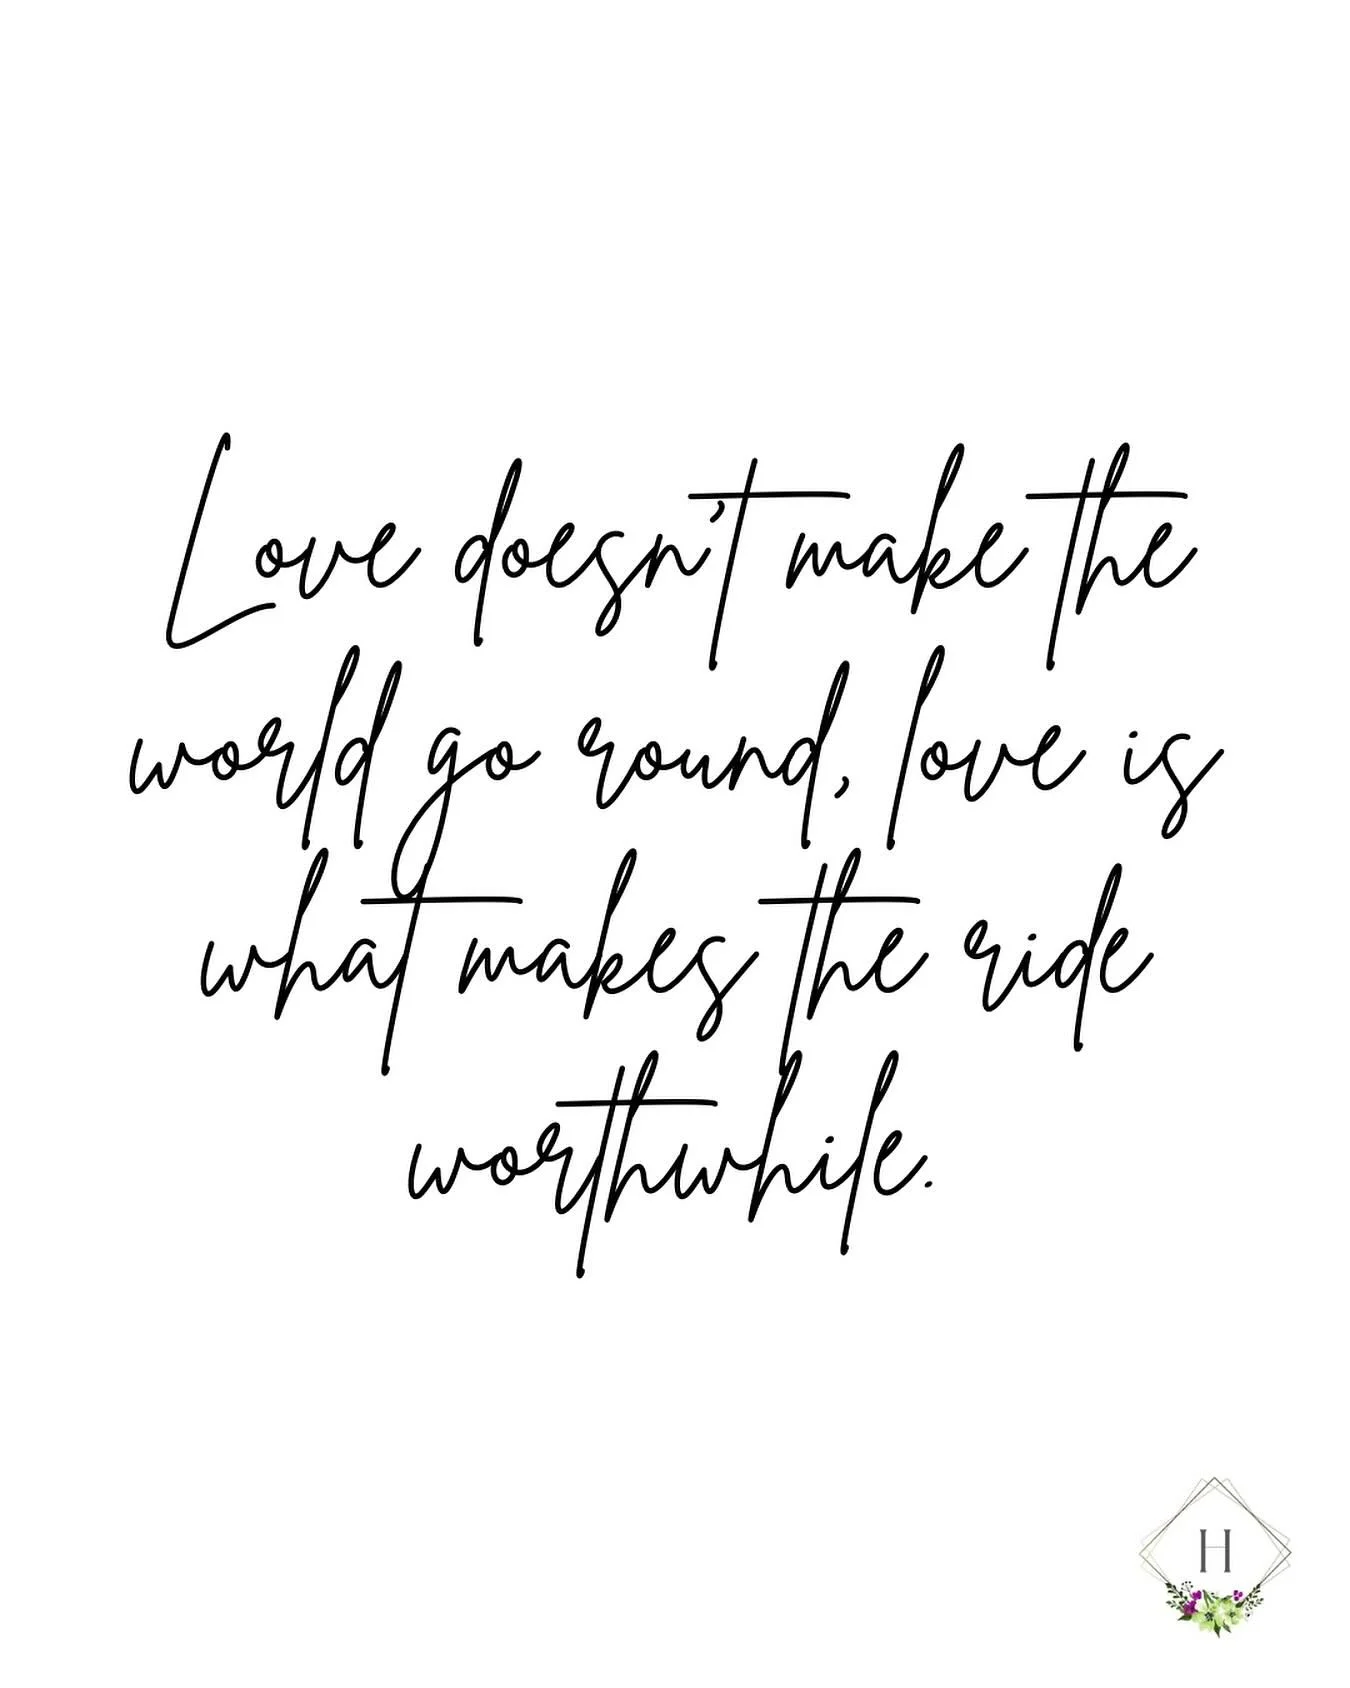 Love doesn't make the
world go round, love is
what makes the ride
worthwhile.
H